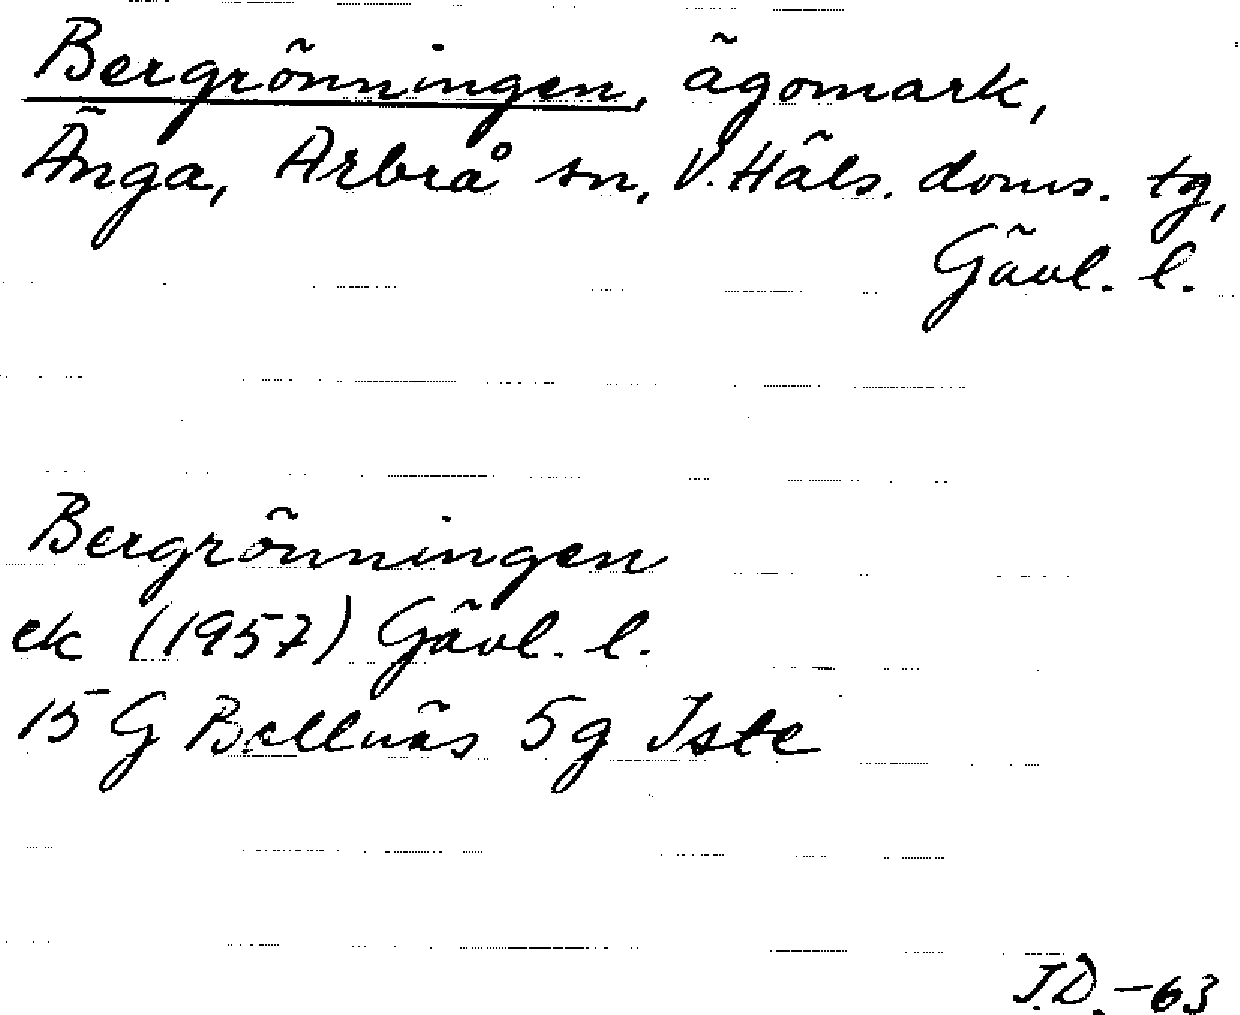 Bergrönningen, ägomark,
Änga, Arbrå sn, V. Häls. doms. tg,
Gävl. l.
Bergrönningen
ek (1957) Gävl. l.
15 G Bollnäs 5g Iste
J.D. -63